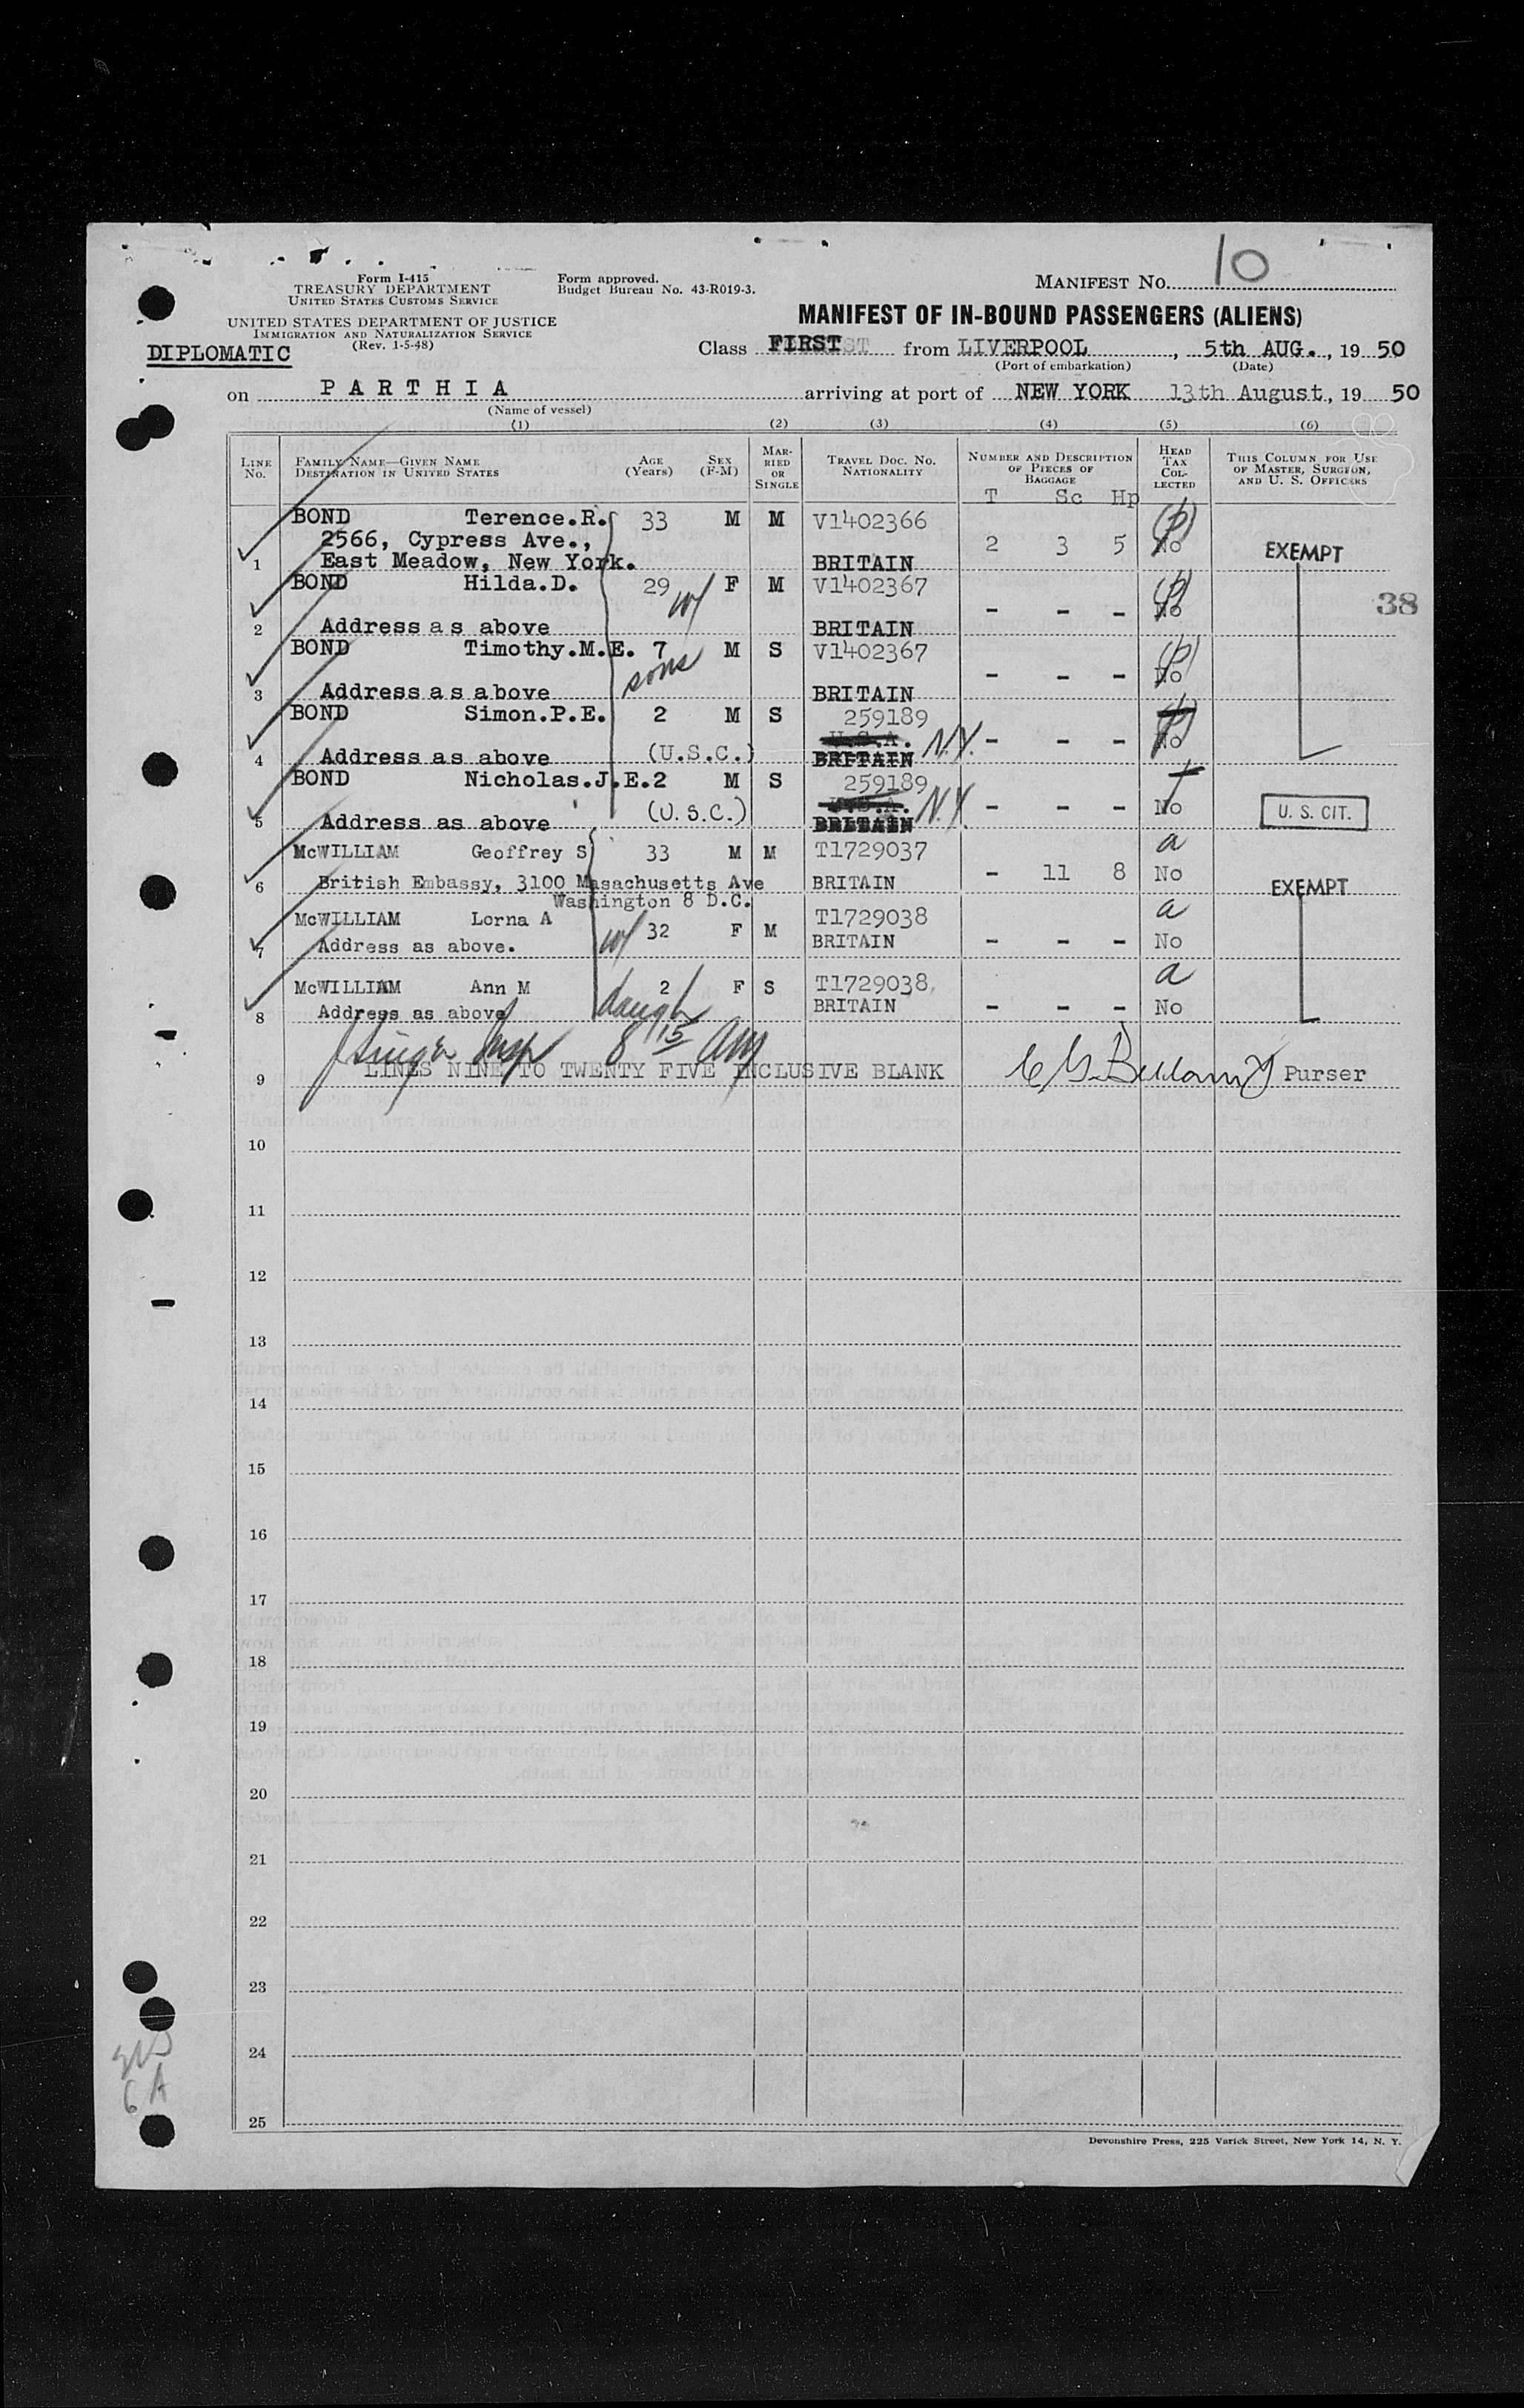 10
Form I-415
TREASURY DEPARTMENT
UNITED STATES CUSTOMS SERVICE
Form approved.
Budget Bureau No. 43-R019-3.
MANIFEST NO.
UNITED STATES DEPARTMENT OF JUSTICE
IMMIGRATION AND NATURALIZATION SERVICE
(Rev. 1-5-48)
MANIFEST OF IN-BOUND PASSENGERS (ALIENS)
DIPLOMATIC
Class FIRST from LIVERPOOL, 5th AUG., 19 50
(Port of embarkation) (Date)
on PARTHIA arriving at port of NEW YORK 13th August, 19 50
(Name of vessel)
(1) (2) (3) (4) (5) (6)
LINE NO. FAMILY NAME—GIVEN NAME DESTINATION IN UNITED STATES AGE (YEARS) SEX (F-M) MARRIED OR SINGLE TRAVEL DOC. NO. NATIONALITY NUMBER AND DESCRIPTION OF PIECES OF BAGGAGE HEAD TAX COLLECTED THIS COLUMN FOR USE OF MASTER, SURGEON, AND U. S. OFFICERS
T Sc Hp
BOND Terence.R. 33 M M V1402366
2566, Cypress Ave., 2 3 5 No EXEMPT
1 East Meadow, New York. BRITAIN
BOND Hilda.D. 29 w/ F M V1402367
38
2 Address as above BRITAIN - - - No
BOND Timothy.M.E. 7 M S V1402367
sons
3 Address as above BRITAIN - - - No
BOND Simon.P.E. 2 M S 259189
U.S.A. N.Y.
4 Address as above (U.S.C.) BRITAIN - - - No
BOND Nicholas.J.E. 2 M S 259189
U.S.A. N.Y.
5 Address as above (U.S.C.) BRITAIN - - - No U. S. CIT.
McWILLIAM Geoffrey S 33 M M T1729037 a
6 British Embassy, 3100 Masachusetts Ave BRITAIN - 11 8 No EXEMPT
Washington 8 D.C.
McWILLIAM Lorna A w/ 32 F M T1729038 a
7 Address as above. BRITAIN - - - No
McWILLIAM Ann M 2 F S T1729038 a
8 Address as above daugh BRITAIN - - - No
Singer Insp 8 15 AM
9 LINES NINE TO TWENTY FIVE INCLUSIVE BLANK Purser
10
11
12
13
14
15
16
17
18
19
20
21
22
23
24
6 A
25
Devonshire Press, 225 Varick Street, New York 14, N. Y.